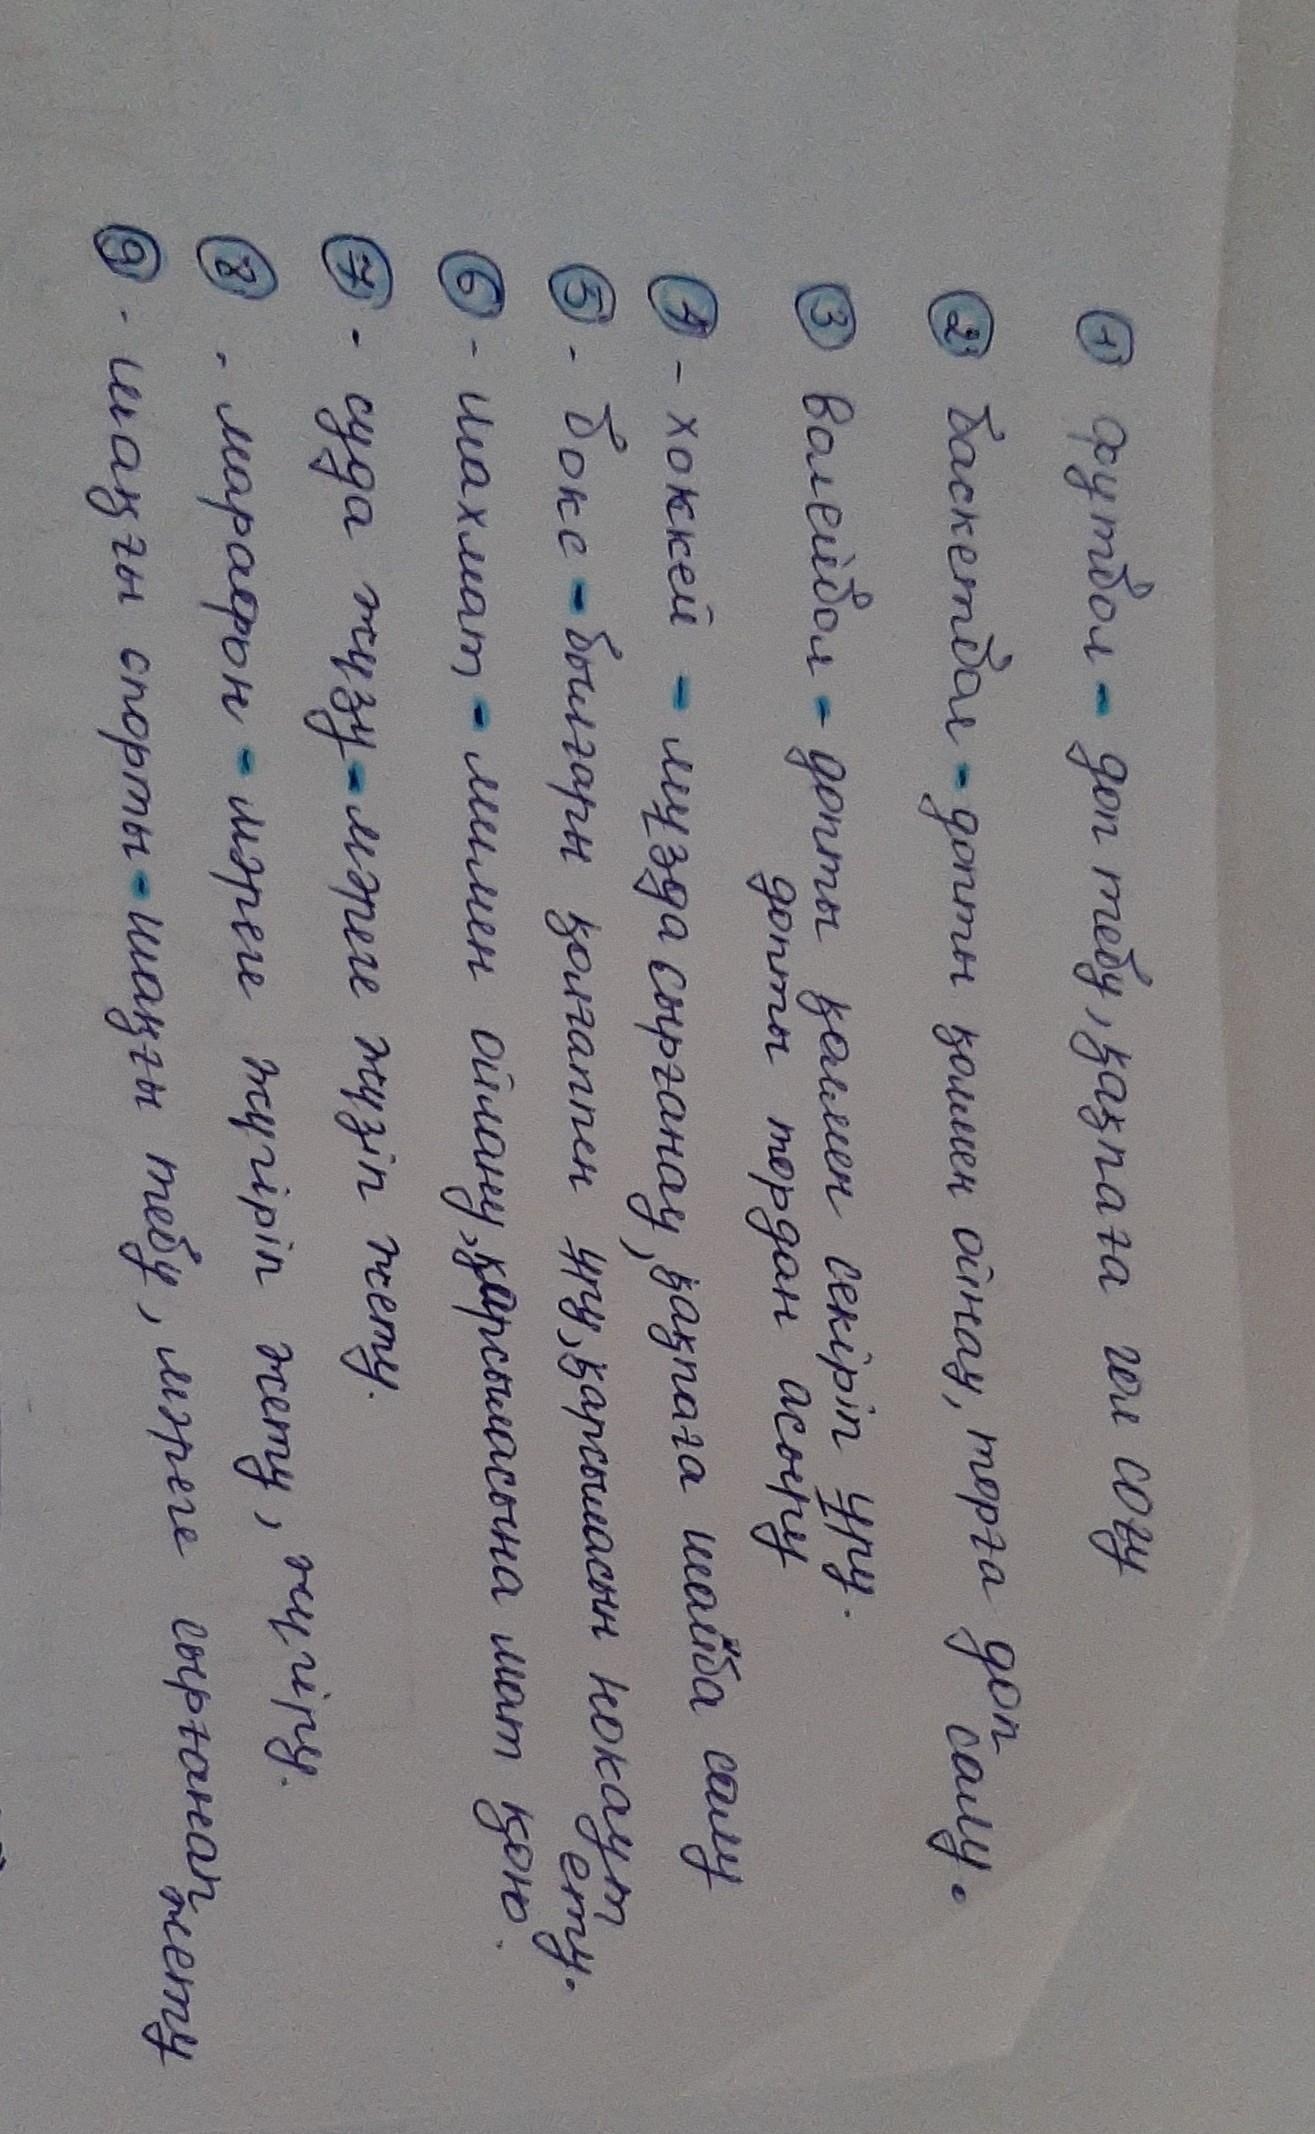 1 футбол - доп тебу, қақпаға гол соғу
2 баскетбол - допты қолмен ойнау, торға доп салу.
3 валейбол - допты қолмен секіріп ұру.
допты тордан асыру
4 - хоккей - мұзда сырғанау, қақпаға шайба салу
5 - бокс - былғары қолғаппен ұру, қарсыласын нокаут ету.
6 - шахмат - милмен ойлану, қарсыласына мат қою.
7 - суда жүзу - мәреге жүзіп жету.
8 - марафон - мәреге жүгіріп жету, жүгіру.
9 - шаңғы спорты - шаңғы тебу, мәреге сырғанап жету